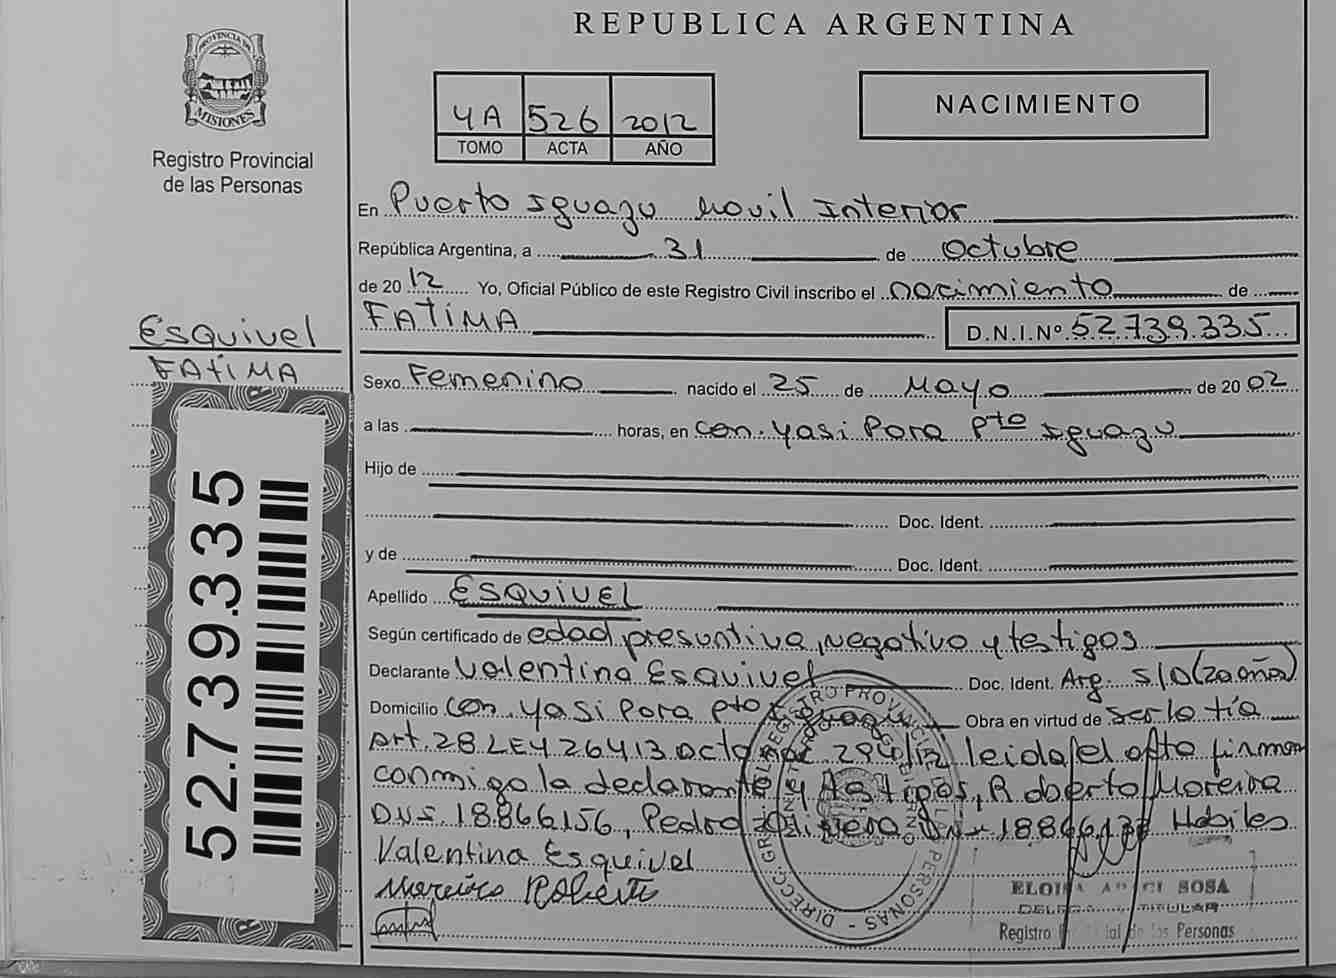 REPUBLICA ARGENTINA
PROVINCIA DE
MISIONES
Registro Provincial
de las Personas
4A 526 2012
TOMO ACTA AÑO
NACIMIENTO
En Puerto Iguazu Movil Interior
República Argentina, a 31 de octubre
de 2012 Yo, Oficial Público de este Registro Civil inscribo el nacimiento de
FATIMA D.N.I.Nº 52.739.335
Esquivel
FATIMA
Sexo Femenino nacido el 25 de Mayo de 2002
a las horas, en Com. Yasi Pora Pto Iguazu
Hijo de
Doc. Ident.
y de Doc. Ident.
Apellido ESQUIVEL
Según certificado de edad presuntiva, negativo y testigos
Declarante Valentina Esquivel Doc. Ident. Arg. S/D (20 años)
Domicilio Com. Yasi Pora Pto Iguazu Obra en virtud de ser la tía
Art. 28 LEY 26413 leida el acta firman
conmigo la declarante y testigos, Roberto Moreira
DNI. 18866156, Pedro Habiles
Valentina Esquivel
Moreira Roberto
52.739.335
SOSA
TITULAR
Registro de las Personas
DIRECC. GRAL. REGISTRO PROVINCIAL DE LAS PERSONAS